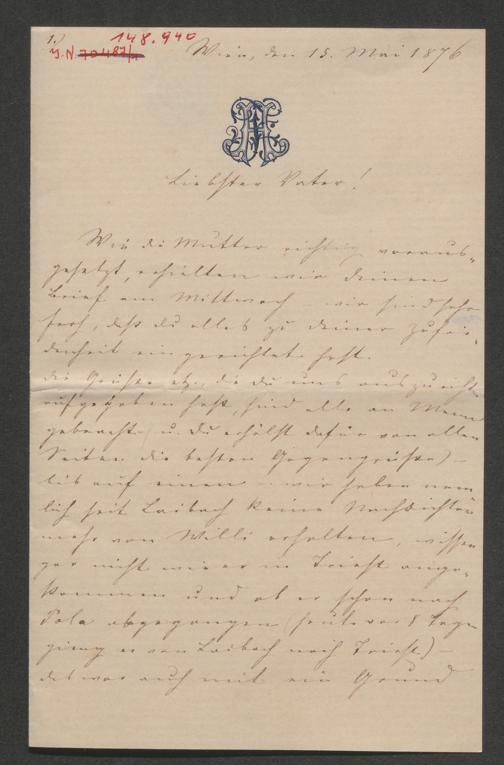 1.) 148.940
J.N. 70487/1 Wien, den 13. Mai 1876
Liebster Vater!
Wie die Mutter richtig voraus-
gesetzt, erhielten wir deinen
Brief am Mittwoch – wir sind sehr
froh, daß du alles zu deiner Zufrie-
denheit eingerichtet hast.
die Grüße etz., die du uns auszurichten
aufgegeben hast, sind alle an Mann
gebracht (u. du erhälst dafür von allen
Seiten die besten Gegengrüße) –
bis auf einen – wir haben nem-
lich seit Laibach keine Nachrichten
mehr von Willi erhalten, wissen
gar nicht wie er in Triest ange-
kommen und ob er schon nach
Pola abgegangen (heute vor 8 Tagen
gieng er von Laibach nach Triest) –
das war auch mit ein Grund